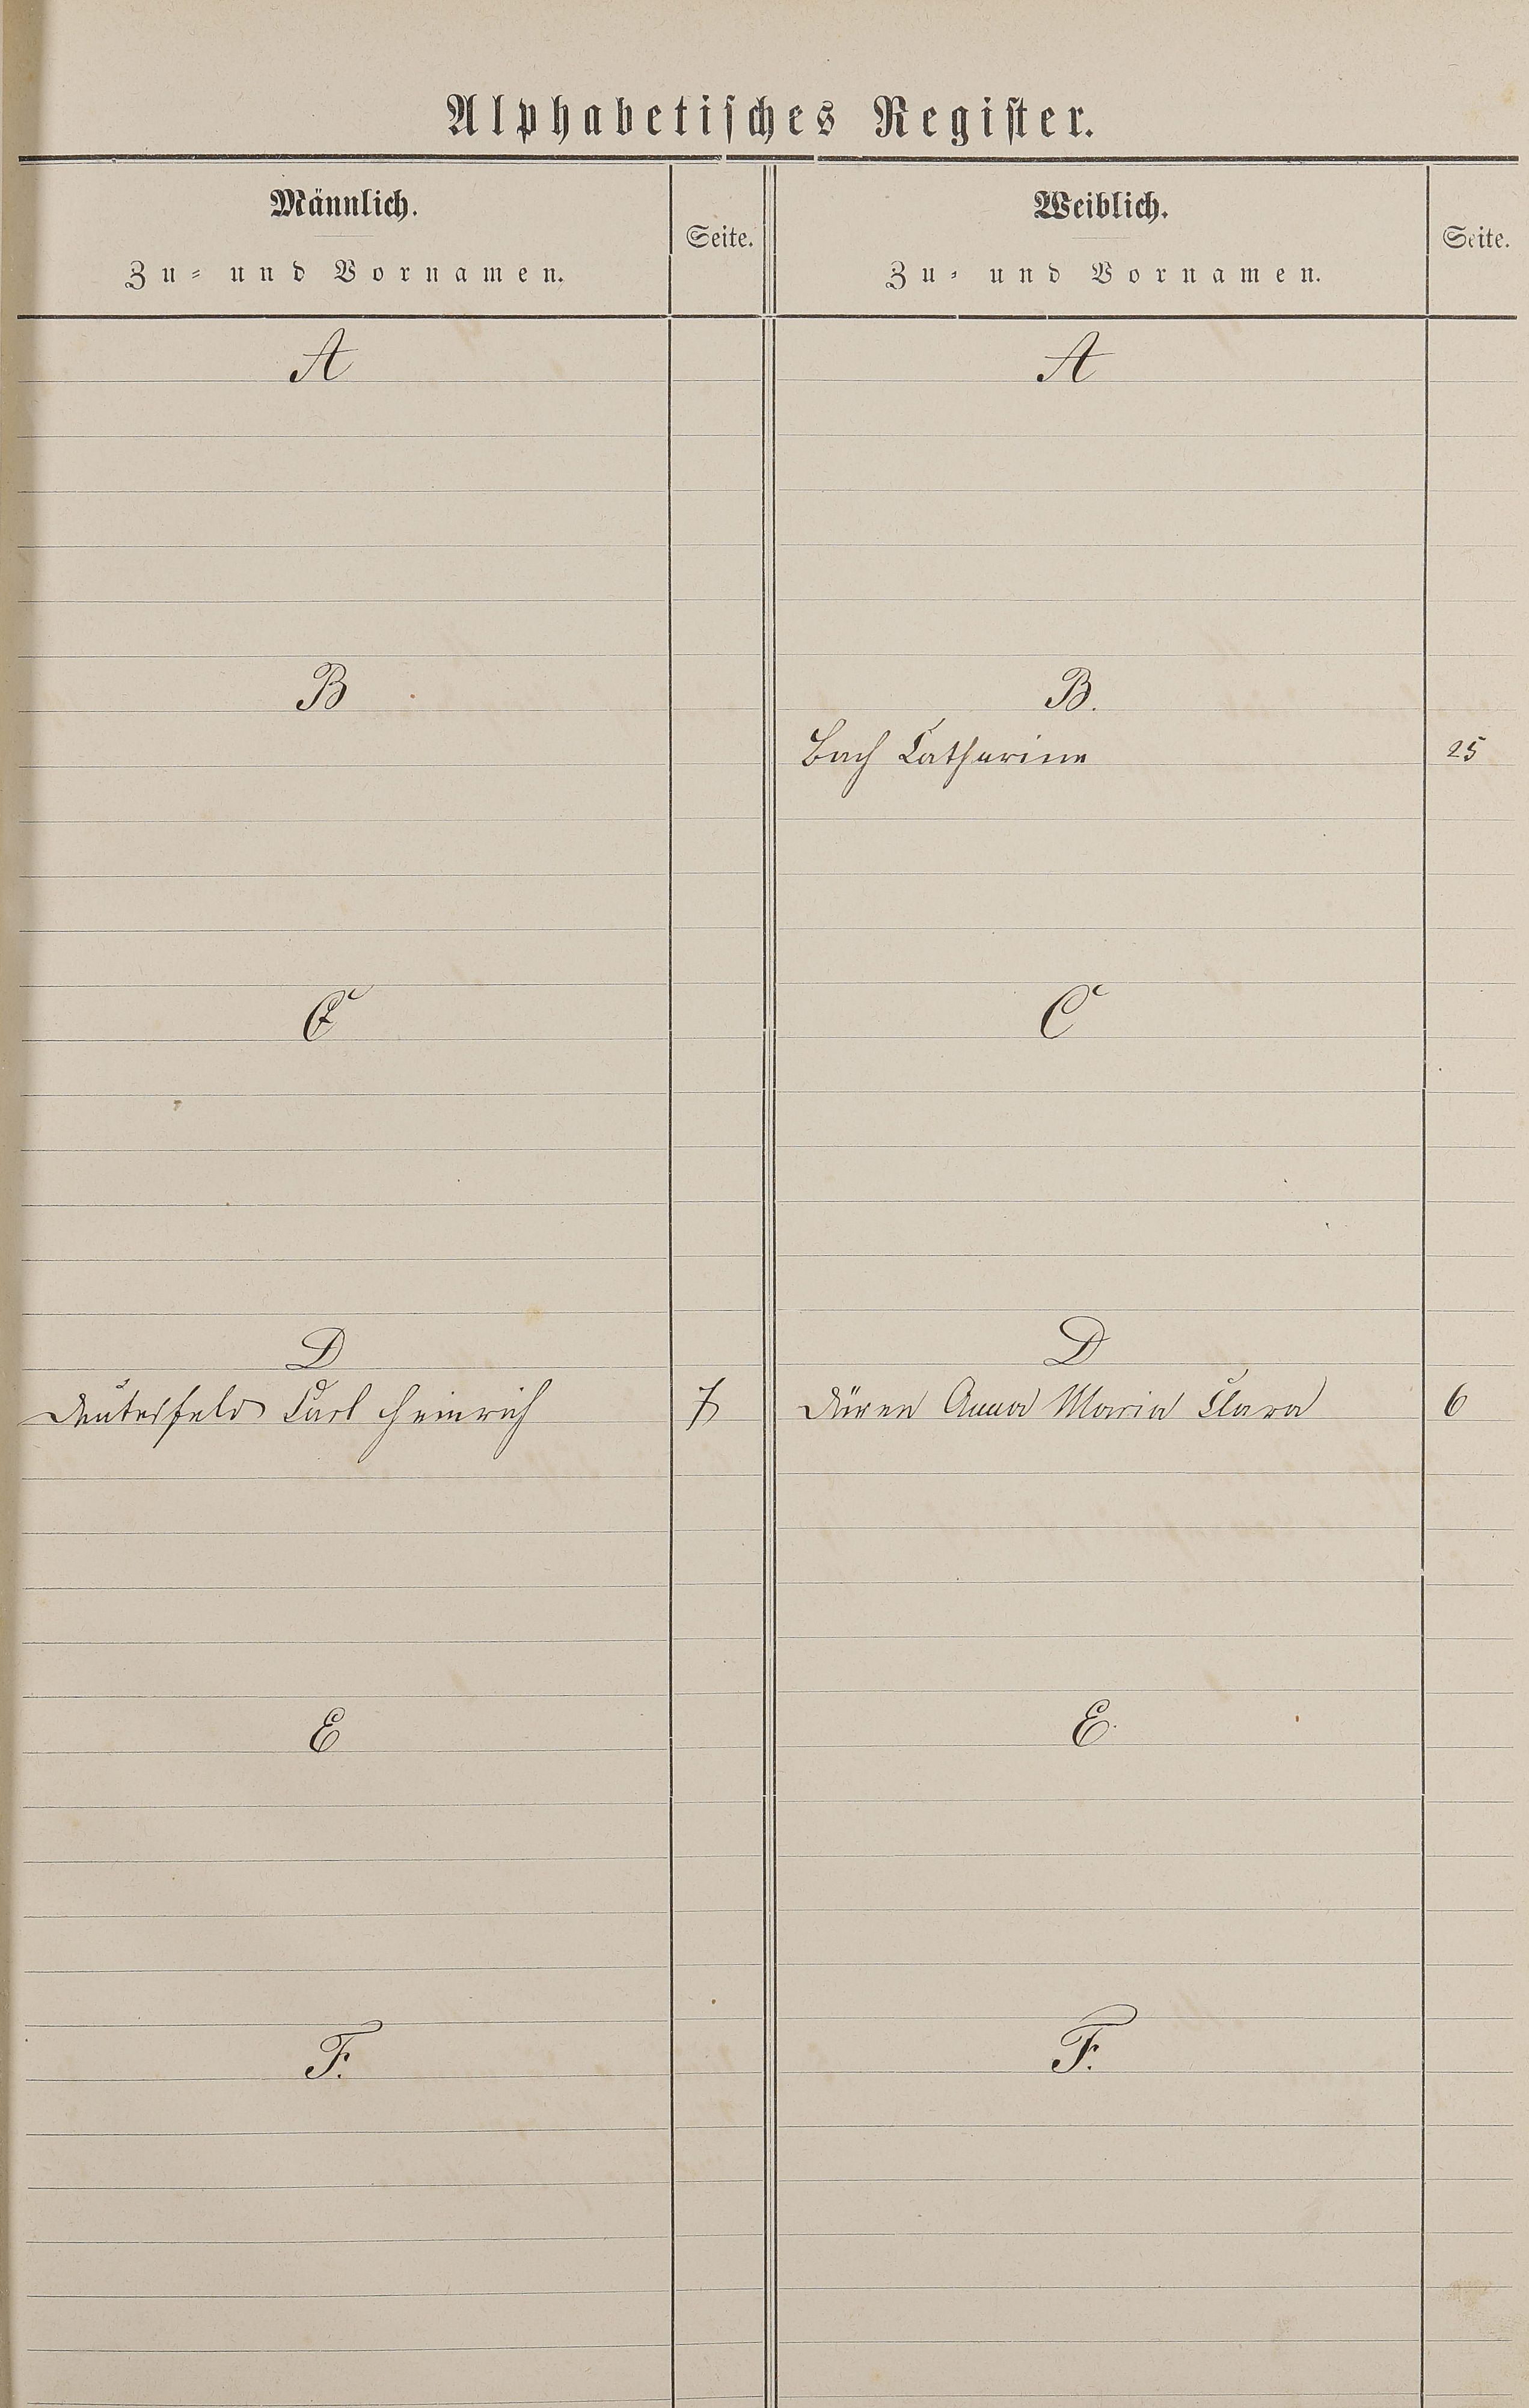 Alphabetisches Register.
Männlich.
Zu- und Vornamen.
Seite.
Weiblich.
Zu- und Vornamen.
Seite.
A
A
B
B.
Bach Catharina 25
C
C
D
D
Carl Heinrich 7
Düren Anna Maria Clara 6
E
E.
F.
F.